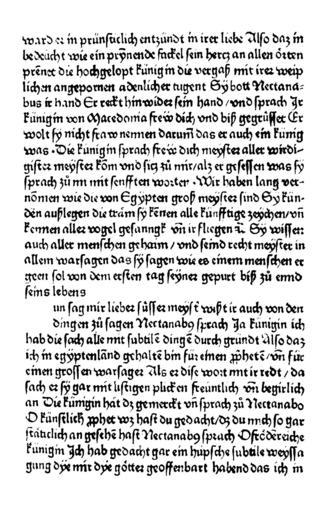 ward er in prünstlich entzündt in irer liebe Also daz in
bedeucht wie ein prynende fackel sein hertz an allen örten
prēnet die hochgelopt künigin die vergaß mit irez weip
lichen angepornen adenlicher tugent Sy bott Nectana-
bus ir hand Er reckt hinwider sein hand / vnd sprach Ir
künigin von Macedonia frew dich vnd biß gegrüsset Er
wolt sy nicht fraw nennen darum̄ das er auch ein künig
was · Die künigin sprach frew dich meyster aller wirdi-
gister meyster kōm vnd sitz zů mir / alz er gesessen was sy
sprach zů im mit senfften worten · Wir haben lang ver-
nōmen wie die von Egypten groß meyster sind Sy kün-
den außlegen die träm sy kēnen alle künfftige zeychen / vn̄
kennen aller vogel gesangk vn̄ ir fliegen Sy wissen
auch aller menschen geham / vnd seind recht meyster in
allem warsagen das sy sagen wie es einem menschen er
geen sol von dem ersten tag seyner gepurt biß zů ennd
seins lebens
un sag mir lieber süsser meyst wißt ir auch von den
dingen zů sagen Nectanabus sprach Ja künigin ich
hab die sach alle mit subtilē dingē durch gründt Also daz
ich in egyptenlād gehaltē bin für einen prophetē / vn̄ für
einen grossen warsager Als er dise wort mit ir redt / da
sach er sy gar mit listigen plicken freüntlich vn̄ begirlich
an Die künigin hat dz gemerckt vn̄ sprach zů Nectanabo
O künstlich prophet wz hast du gedacht / dz du mich so gar
stätticlich an gesehē hast Nectanabus sprach O frödenreiche
künigin Ich hab gedacht gar ein hüpsche subtile weyssa
gung dye mir dye götter geoffenbart habend das ich in